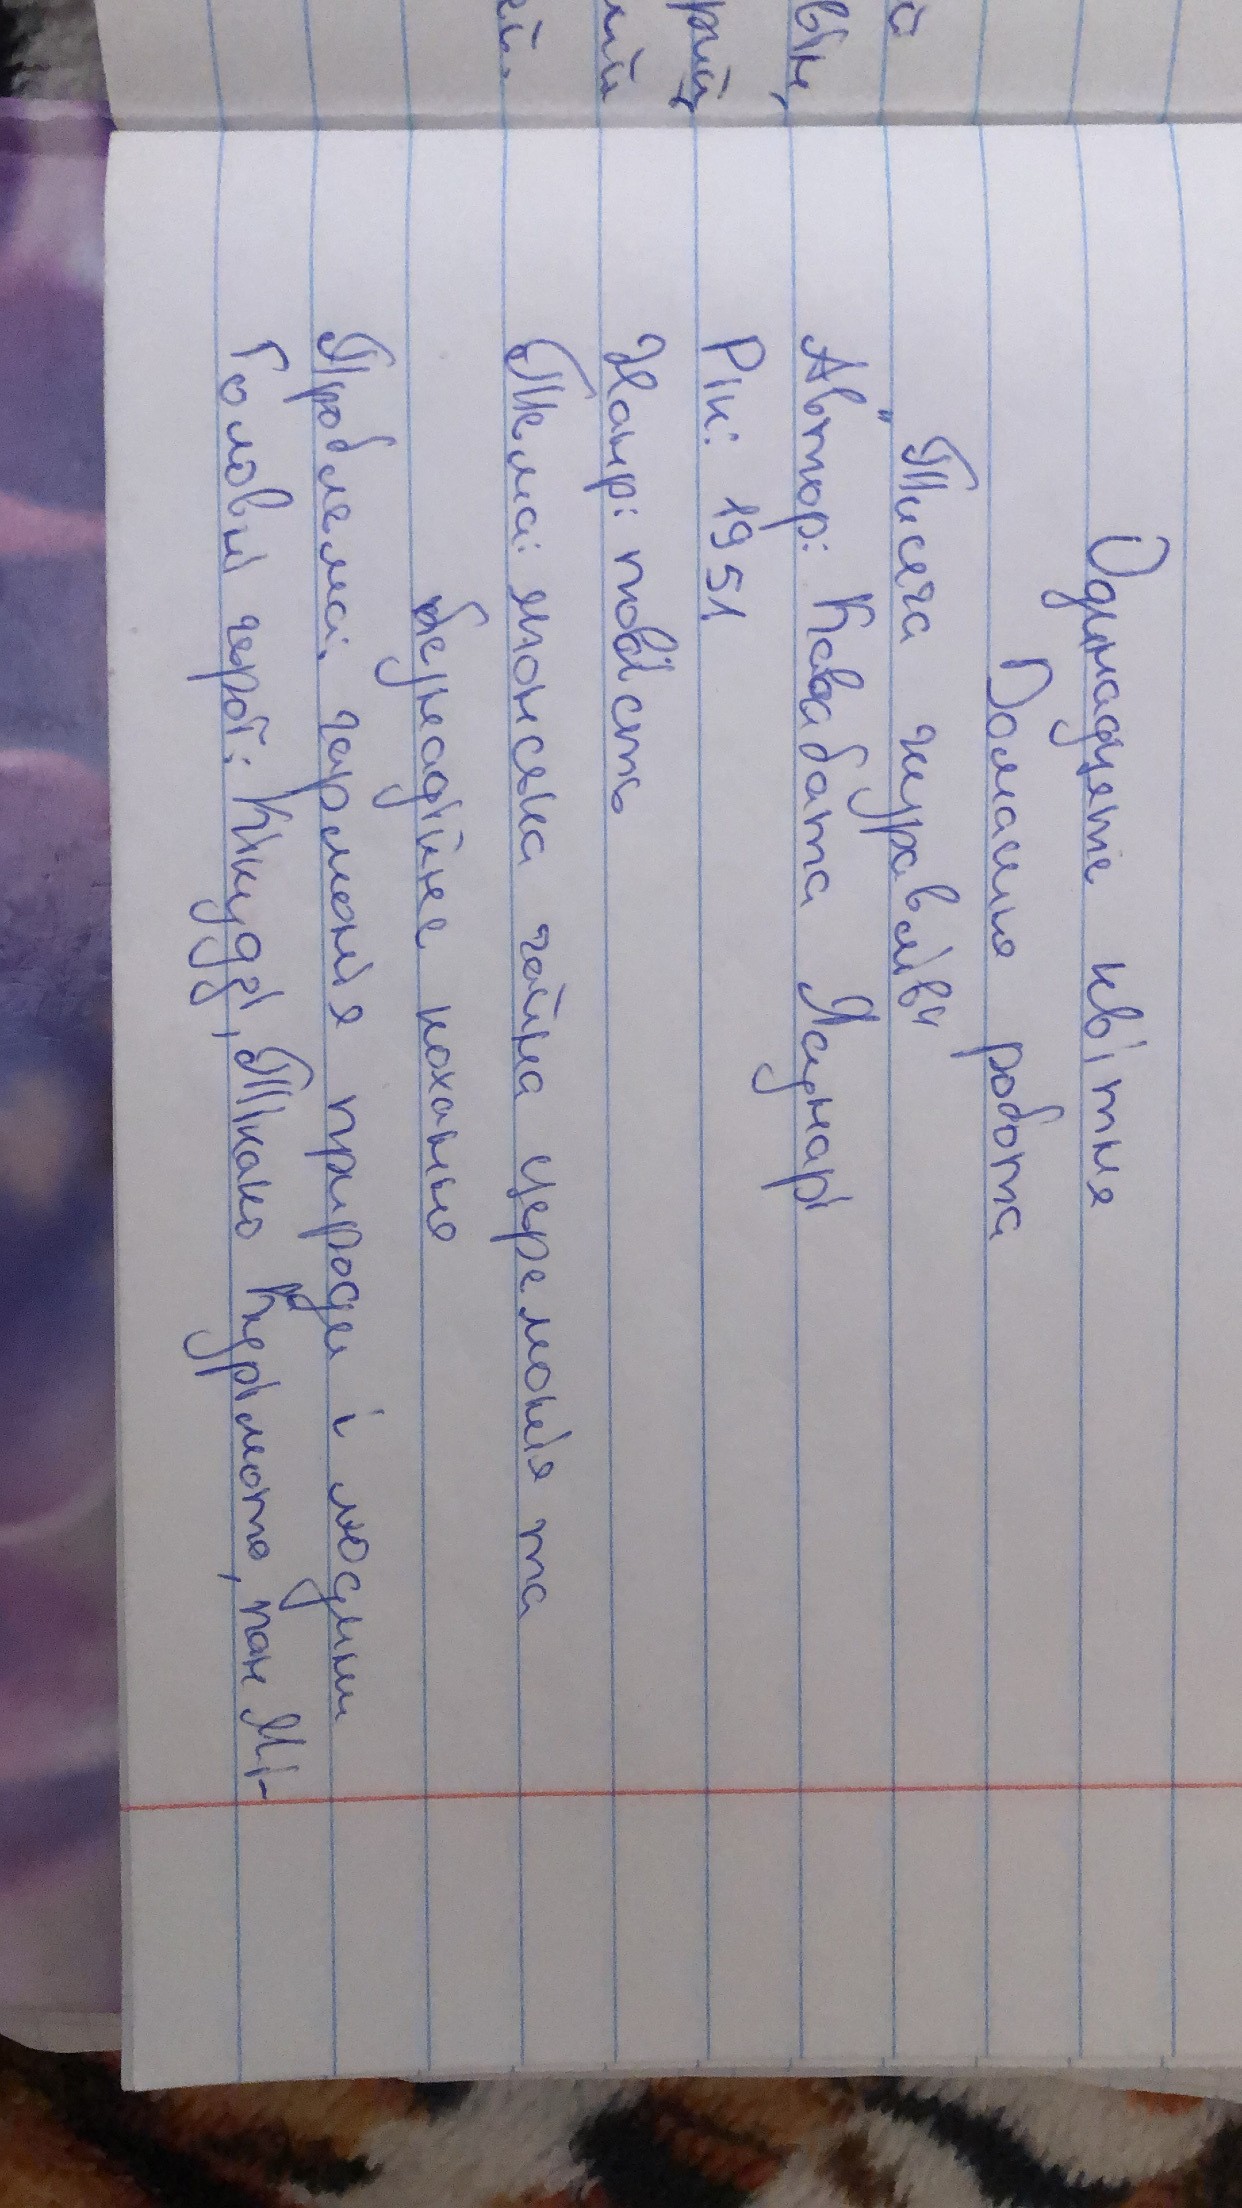 Одинадцяте квітня
Домашня робота
"Тисяча журавлів"
Автор: Кавабата Ясунарі
Рік: 1951
Жанр: повість
Тема: японська чайна церемонія та
безнадійне кохання
Проблема: гармонія природи і людини
Головні герої: Кікудзі, Тікако Курімото, пан Мі-